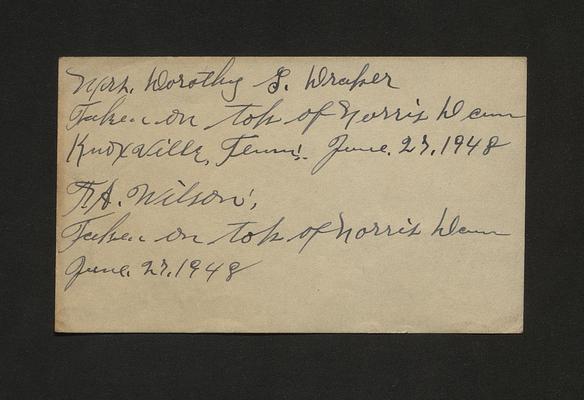 Mrs. Dorothy G. Draper
Taken on top of Norris Dam
Knoxville, Tenn. June. 27, 1948
F.A. Wilson,
Taken on top of Norris Dam
June. 27, 1948